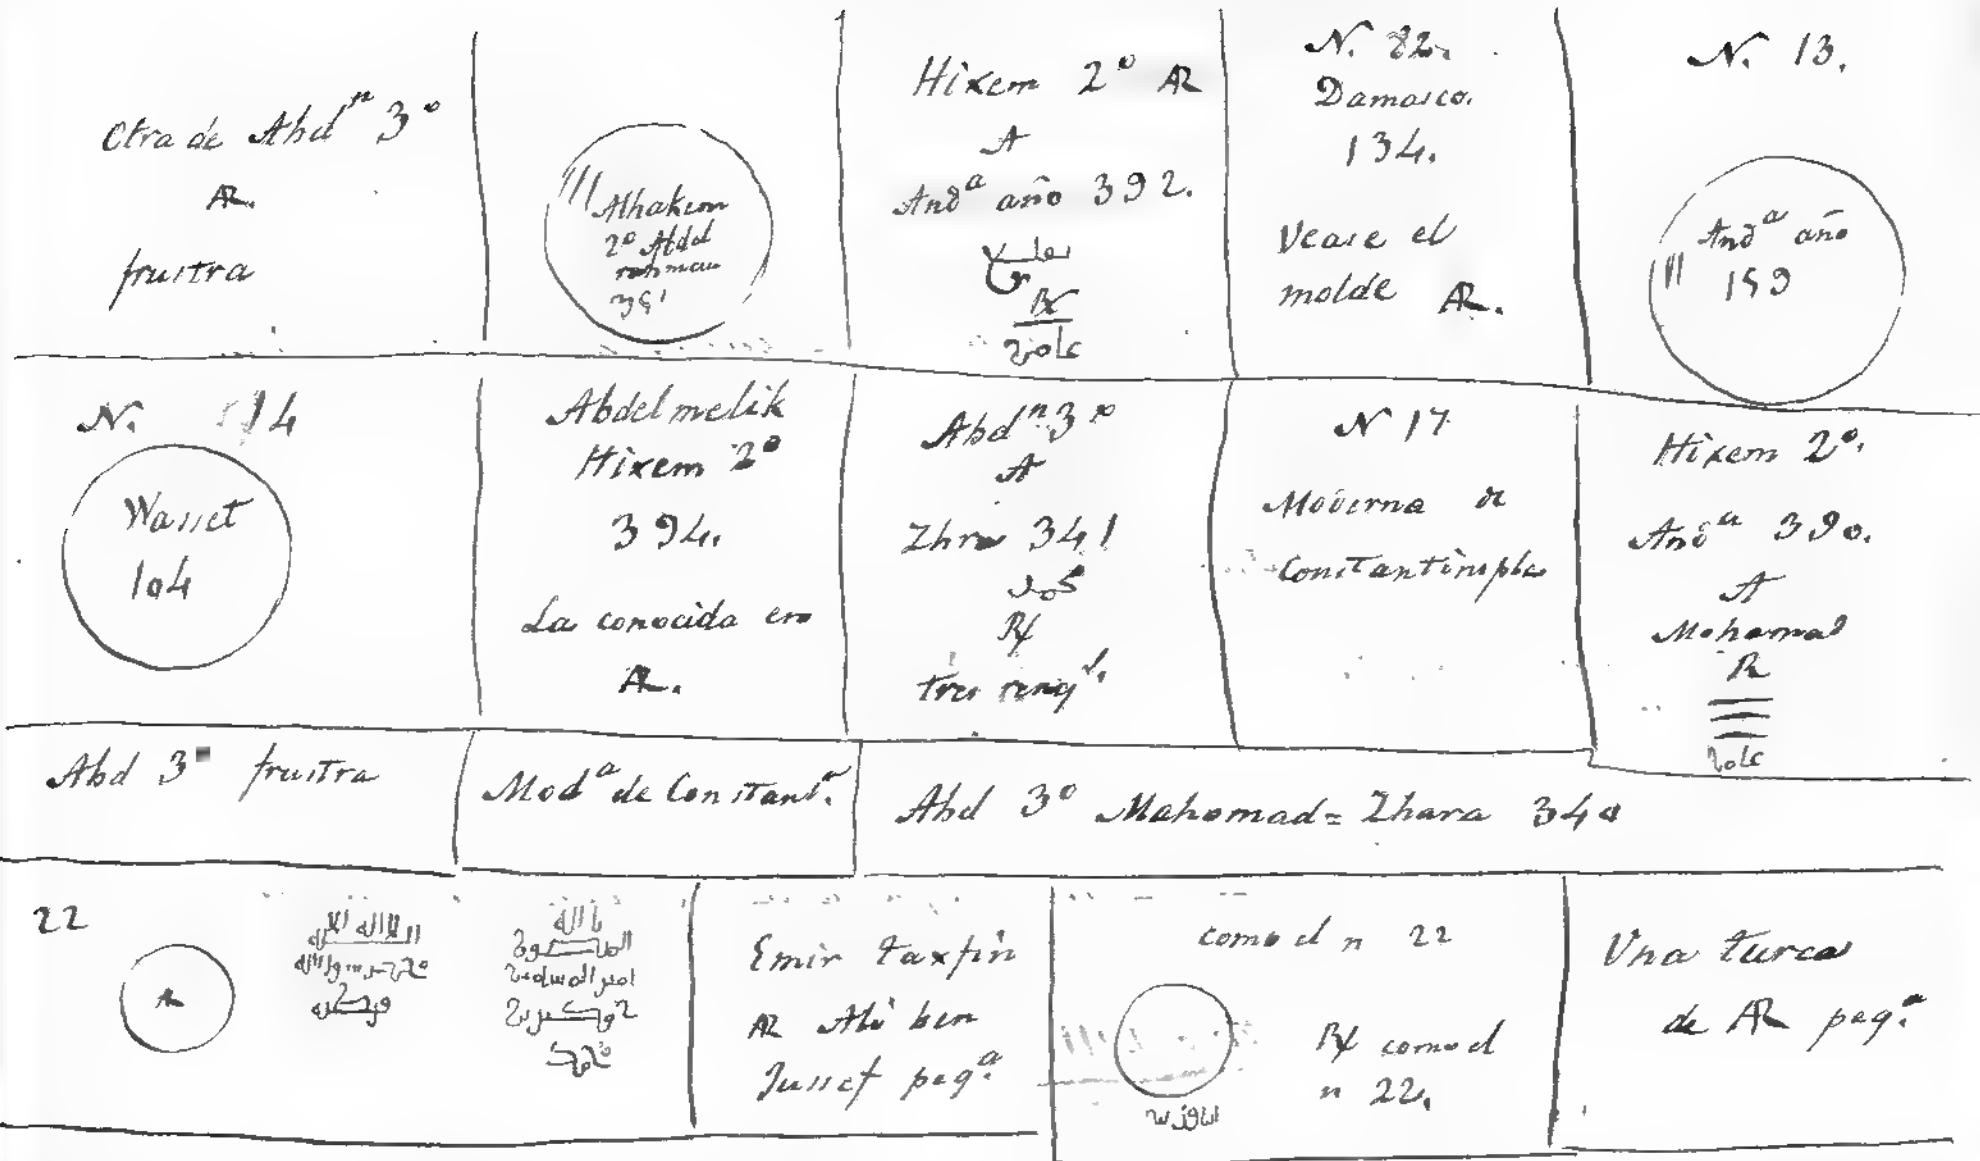 Otra de Abd.n 3.o
AR.
frustra
Alhakem
2o Abdel
rahman
351
Hixem 2o AR
A
And.a año 392.
R
عامر
N. 82.
Damasco.
134.
Vease el
molde AR.
N. 13.
And.a año
159
N. 14
Wasset
104
Abdelmelik
Hixem 2o
394.
La conocida en
AR.
Abd.n 3o
A
Zhra 341
محمد
R
tres reng.s
N 17
Moderna de
Constantinopla
Hixem 2o.
And.a 390.
A
Mohamad
R
عامر
Abd 3o frustra
Mod.a de Constant.a
Abd 3o Mahomad = Zhara 340
22
AR
لا اله الا الله
محمد رسول الله
بالله
امير المسلمين
محمد
Emir Taxfin
AR Ali ben
Jussef peq.a
como el n 22
R como el
n 22.
Una turca
de AR peq.a